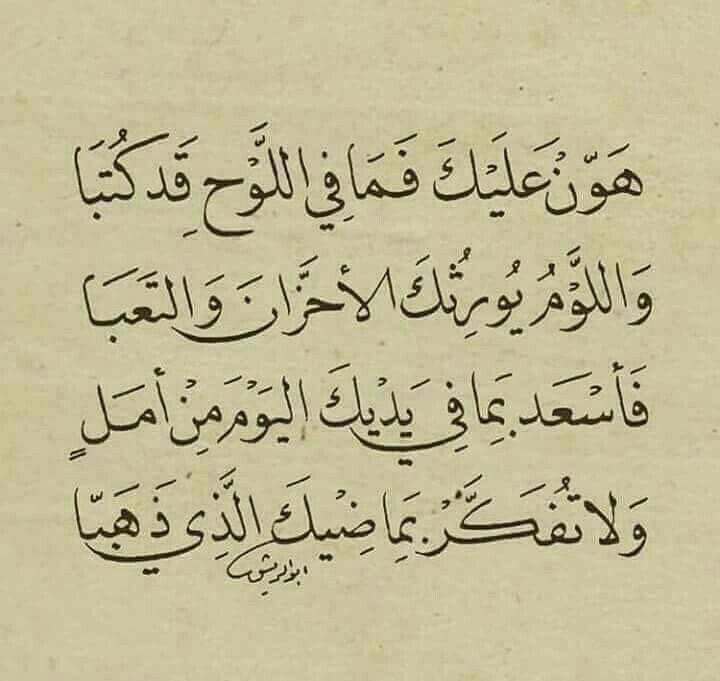 هَوّنْ عَليْكَ فَمَا فِي اللَّوْحِ قَد كُتبَا
وَاللَّوْمُ يُورِثُكَ الأحزَّانَ وَالتعَبَا
فَأسْعَد بِمِا فِي يَدْيكَ اليَوْمَ مِنْ أمَلٍ
وَلا تُفَكَّرْ بِمَاضِيْكَ الَّذِي ذَهَبّا
ابوالريش